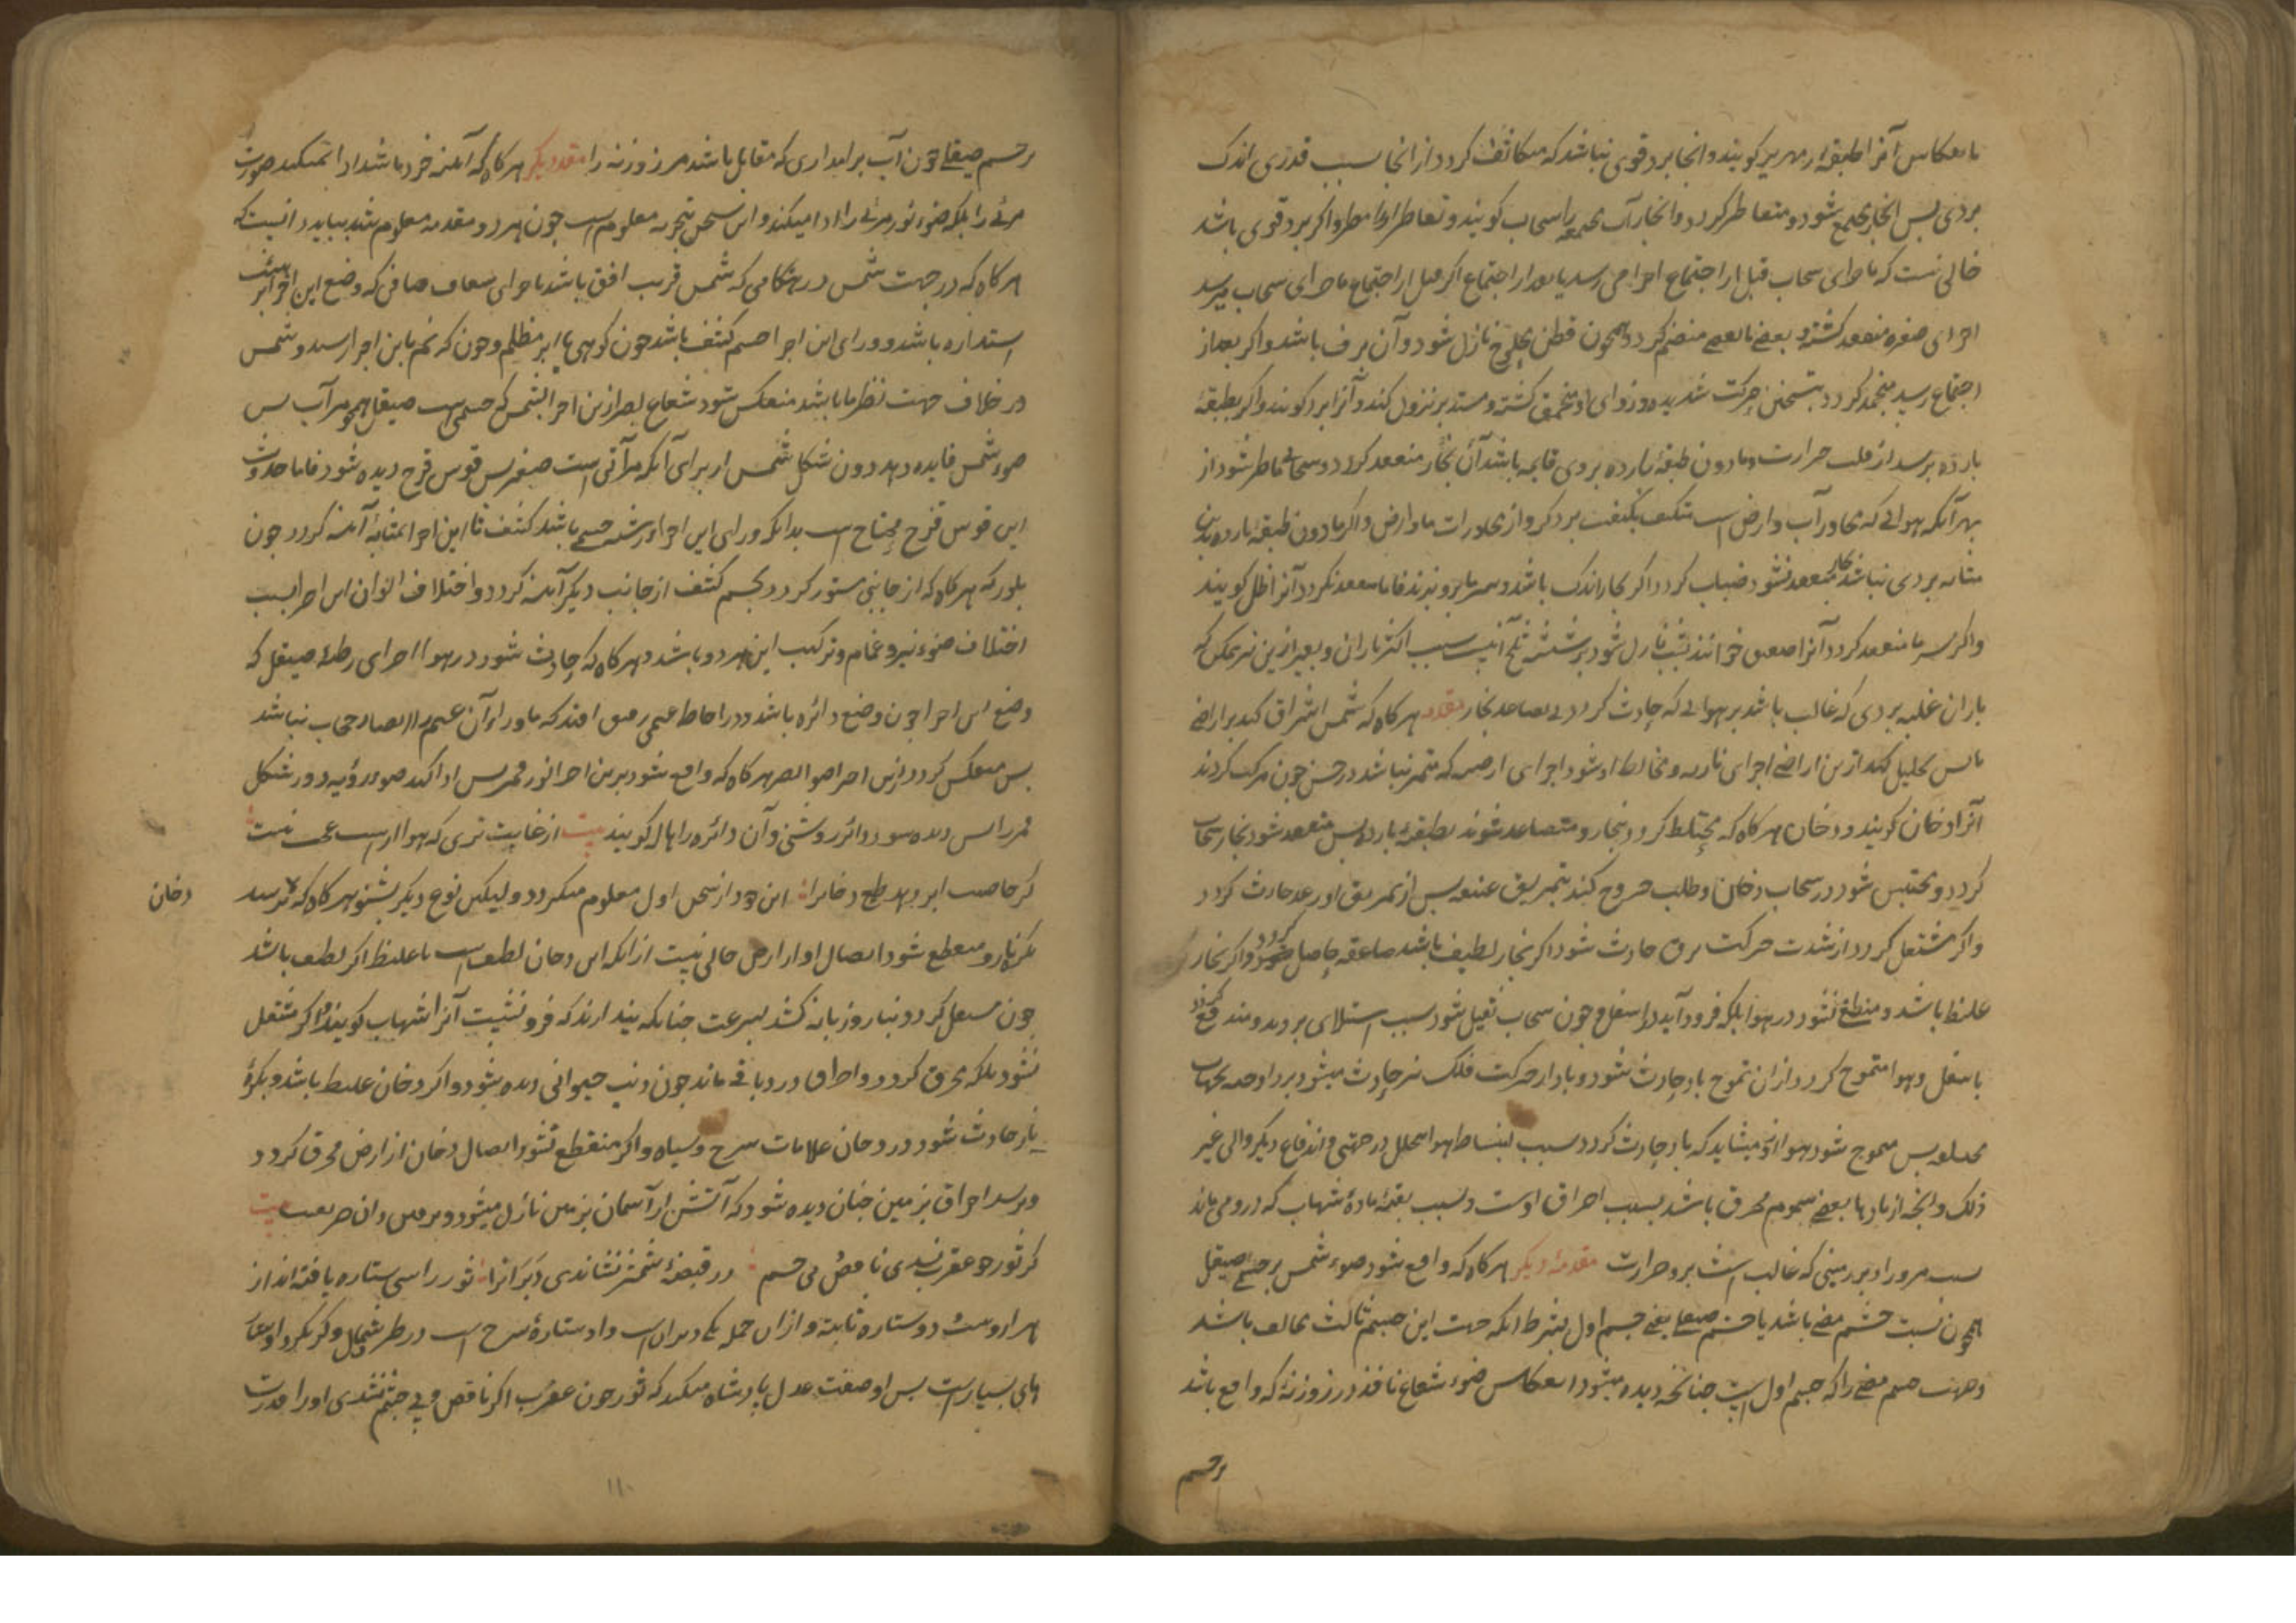 بانعکاس آنرا طبقه زمهریر کویند وانجا برد قوی نباشد که متکاثف کردد از انجا بسبب قدری اندک
بردی پس انجا مجتمع شود و متقاطر کردد وانجار آب مجتمعه را سحاب کویند و تقاطر اورا مطر واکر برد قوی باشد
خالی نیست که باجزای سحاب قبل از اجتماع اجزا می رسد یا بعد از اجتماع اکر قبل از اجتماع باجزای سحاب میرسد
اجزای صغره منعقد کشته و بعضی با بعضی منضم کردد و همچون قطن محلوج نازل شود و آن برف باشد واکر بعد از
اجتماع رسید منجمد کردد بتسخین حرکت شدیده زوایای او منمحق کشته و مستدیر نزول کند و آنرا برد کویند واکر بطبقهٔ
بارده برسد از قلت حرارت و مادون طبقهٔ بارده بردی قایمه باشد آن بخار منعقد کردد و سحاب ماطر شود از
بهر آنکه هوائی که مجاور آب و ارض است متکیف بکیفیت برد کردد از مجاورات ما و ارض واکر مادون طبقهٔ بارده بدین
مثابه بردی نباشد بخار منعقد نشود ضباب کردد اکر بخار اندک باشد و سرما برو بزند فاما منعقد نکردد آنرا طل کویند
واکر سرما منعقد کردد آنرا صقیع خوانند نازل شود اینست سبب اکثر باران و بغیر ازین نیز ممکن که
باران غلبه بردی که غالب باشد بر هوائی که حادث کردد بی تصاعد بخار مقدمه هر کاه که شمس اشراق کند بر اراضی
یابس تحلیل کند ازین اراضی اجزای ناریه و مخالط او شود اجزای ارضیه که متمیز نباشد در حس چون مرکب کردند
آنرا دخان کویند و دخان هر کاه که مختلط کردد ببخار و متصاعد شوند بطبقهٔ بارده پس منعقد شود بخار سحاب
کردد و محتبس شود در سحاب دخان و طلب خروج کند بتمزیق عنیف پس از تمزیق او رعد حادث کردد
واکر مشتعل کردد از شدت حرکت برق حادث شود اکر بخار لطیف باشد صاعقه حاصل کردد واکر بخار
غلیظ باشد و منطفی نشود در هوا بلکه فرود آید باسفل و چون سحاب ثقیل شود بسبب استیلای برد و مندفع کردد
باسفل و هوا متموج کردد از ان تموج باد حادث شود و باد از حرکت فلک نیز حادث میشود بجهات
مختلفه پس متموج شود هوا ازو میشاید که باد حادث کردد بسبب انبساط هوا بتخلل در جهتی و اندفاع دیکر والی غیر
ذلک و انچه از بادها بعضی سموم محرق باشد بسبب احراق اوست و بسبب بقیهٔ مادهٔ شهاب که درو می ماند
بسبب مرور او بر زمینی که غالب است برو حرارت مقدمهٔ دیکر هر کاه که واقع شود ضوء شمس بر جسم صیقل
همچون نسبت جسم مضی باشد با جسم صیقل یعنی جسم اول بشرط انکه جهت این جسم ثالث مخالف باشد
و جهت جسم مضی را که جسم اول است چنانچه دیده میشود انعکاس ضوء شعاع نافذ در روزنه که واقع باشد
بر جسم
بر جسم صیقل چون آب بر جداری که مقابل باشد مر روزنه را مقدمهٔ دیکر هر کاه که آینه خرد باشد ادا نمیکند صورت
مرئی را بلکه ضوء نور مرئی را ادا میکند و این سخن بتجربه معلوم است چون هر دو مقدمه معلوم شد بباید دانست که
هر کاه که در جهت شمس در هنکامی که شمس قریب افق باشد اجزای شفاف صافی که وضع این اجزا بر هیئت
استداره باشد و ورای این اجزا جسم کثیف باشد چون کوهی یا ابر مظلم و چون که نظر باین اجزا رسد و شمس
در خلاف جهت نظر ما باشد منعکس شود شعاع بصر ازین اجزا بشمس که جسمی است صیقل همچو مرآب پس
ضوء شمس فایده دهد دون شکل شمس از برای آنکه مرآتی است صغیر پس قوس قزح دیده شود فاما حدوث
این قوس قزح محتاج است بدانکه ورای این اجزا جسمی باشد کثیف تا این اجزا بمثابهٔ آینه کردد چون
بلور که هر کاه که از جانبی مستور کردد بجسم کثیف از جانب دیکر آینه کردد و اختلاف الوان این اجزا بسبب
اختلاف ضوء نیر و غمام و ترکیب این هر دو باشد و هر کاه که حادث شود در هوا اجزای رطبهٔ صیقل که
وضع این اجزا چون وضع دائره باشد و در احاطه غیمی رقیق افتد که ماوراء آن غیم را از ابصار حجاب نباشد
پس منعکس کردد ازین اجزا ضوء البصر هر کاه که واقع شود برین اجزا نور قمر پس ادا کند ضوء رؤیه دون شکل
قمر را پس دیده شود دائره روشنی و آن دائره را هاله کویند بیت از غایت تری که هوا راست عجب نیست
کر خاصیت ابر دهد طبع دخان را این خود از سخن اول معلوم میکردد ولیکن نوع دیکر بشنو هر کاه که برسد دخان
بکرهٔ نار و منقطع شود اتصال او از ارض خالی نیست از انکه این دخان لطیف است یا غلیظ اکر لطیف باشد
چون مشتعل کردد بنار و زبانه کشد بسرعت چنانکه پندارند که فرو نشست آنرا شهاب کویند و اکر مشتعل
نشود بلکه محرق کردد و احراق درو باقی ماند چون ذنب حیوانی دیده شود و اکر دخان غلیظ باشد و بکرهٔ
نار حادث شود در دخان علامات سرخ و سیاه واکر منقطع نشود اتصال دخان از ارض محرق کردد
و برسد احراق بزمین چنان دیده شود که آتش از آسمان بزمین نازل میشود و بر زمین و ان حریقست بیت
کر ثور چو عقرب نشدی ناقص و بی چشم در قبضهٔ شمشیر نشاندی دبران را ثور را سی ستاره یافته اند از
هزار و بیست و دو ستاره ثابته و از ان جمله یکی دبران است و او ستارهٔ سرخ است
های بسیارست پس او صفت عدل پادشاه میکند که ثور چون عقرب اکر ناقص و بی چشم نشدی او را قدرت
۱۱۰